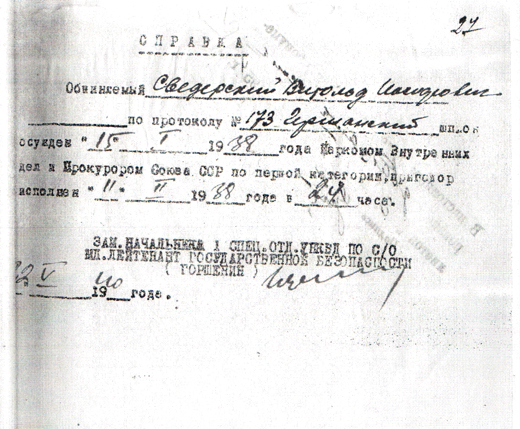 27
СПРАВКА
Обвиняемый Сведерский Витольд
по протоколу № 173 Германский шпион
осужден "15" I 1938 года Наркомом Внутренних
дел и Прокурором Союза ССР по первой категории, приговор
исполнен "11" II 1938 года в 24 часа.
ЗАМ. НАЧАЛЬНИКА 1 СПЕЦ.ОТД.УНКВД ПО С/О
МЛ.ЛЕЙТЕНАНТ ГОСУДАРСТВЕННОЙ БЕЗОПАСНОСТИ
( ГОРШЕНИН )
V 19 40 года.